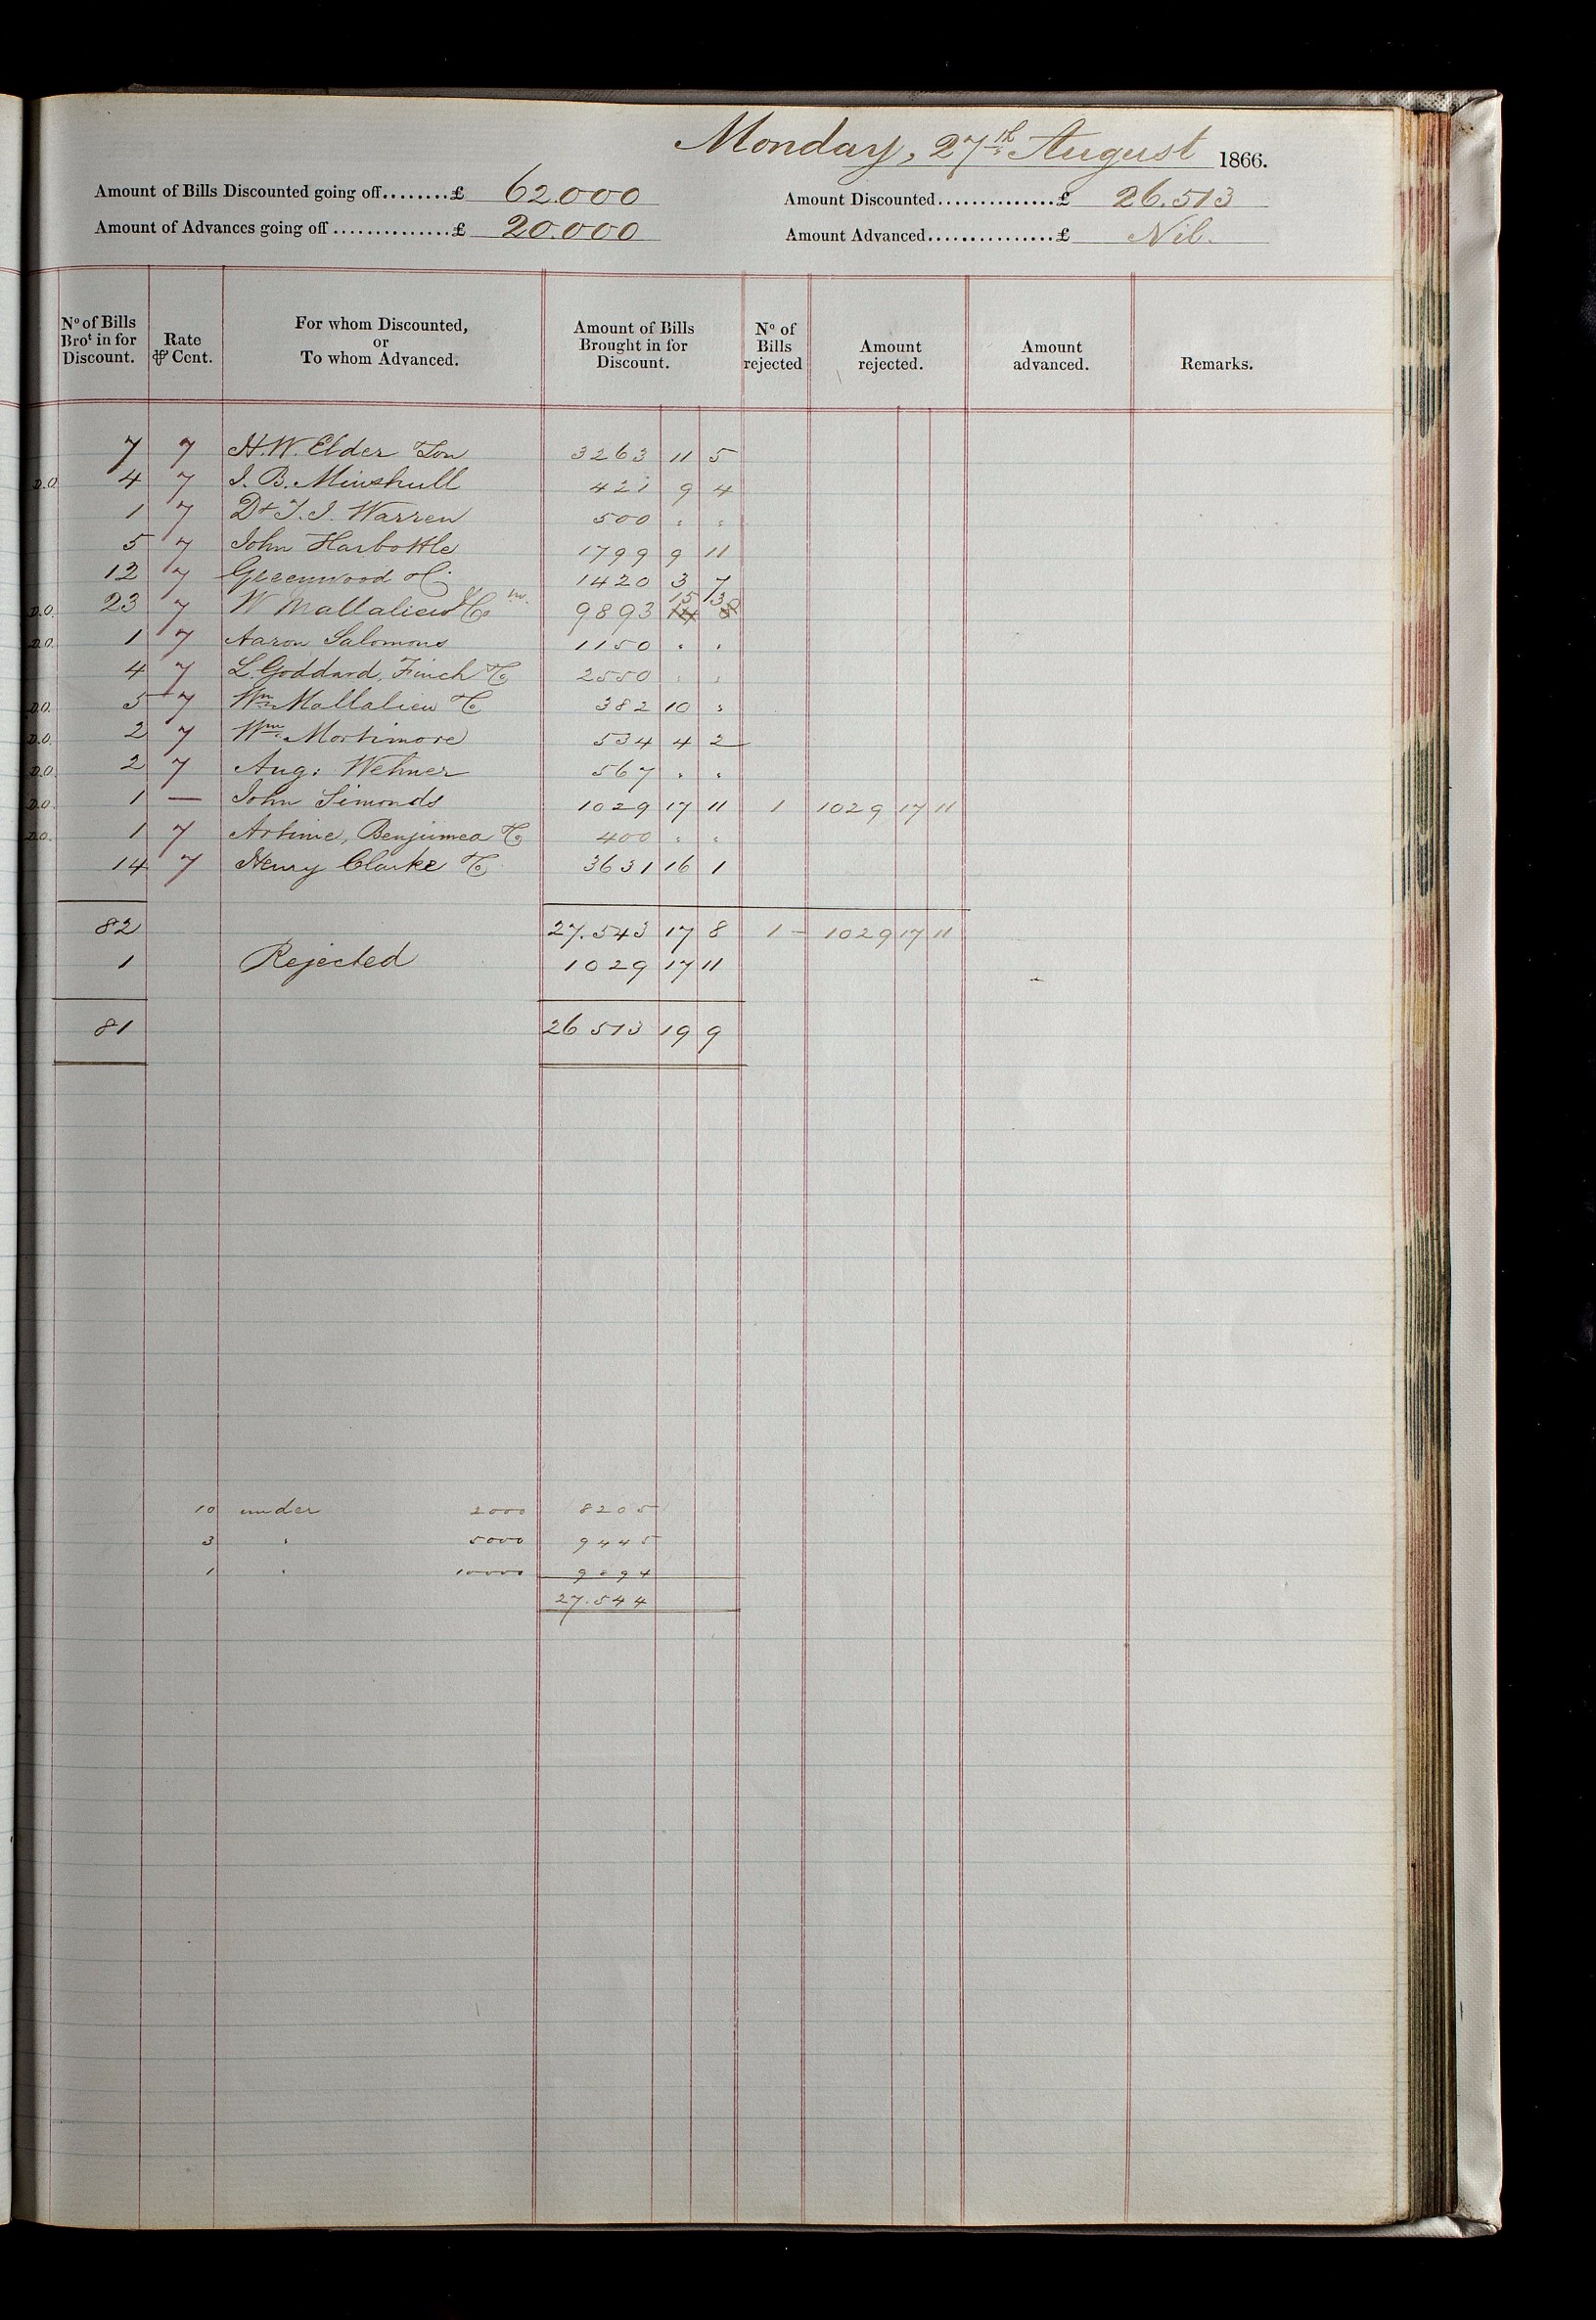 Monday, 27th August 1866.
Amount of Bills Discounted going off........£ 62.000 Amount Discounted..............£ 26.513
Amount of Advances going off..............£ 20.000 Amount Advanced...............£ Nil.
No of Bills Brot in for Discount. Rate ⅌ Cent. For whom Discounted, or To whom Advanced. Amount of Bills Brought in for Discount. No of Bills rejected Amount rejected. Amount advanced. Remarks.
7 7 H.W. Elder Son 3263 11 5
D.O. 4 7 J. B. Minshull 421 9 4
1 7 Dr T. J. Warren 500 " "
5 7 John Harbottle 1799 9 11
12 7 Greenwood & C 1420 3 7
D.O. 23 7 W Mallalieu & Co 9893 15 3
D.O. 1 7 Aaron Salomons 1150 " "
4 7 L. Goddard, Finch & C 2550 " "
D.O. 5 7 Wm Mallalieu & C 382 10 "
D.O. 2 7 Wm Mortimore 534 4 2
D.O. 2 7 Aug: Wehner 567 " "
D.O. 1 — John Simonds 1029 17 11 1 1029 17 11
D.O. 1 7 Artime, Benjumea & C 400 " "
14 7 Henry Clarke & C 3631 16 1
82 27.543 17 8 1 - 1029 17 11
1 Rejected 1029 17 11
81 26 513 19 9
10 under 2000 8205
3 " 5000 9445
1 " 10000 9894
27.544